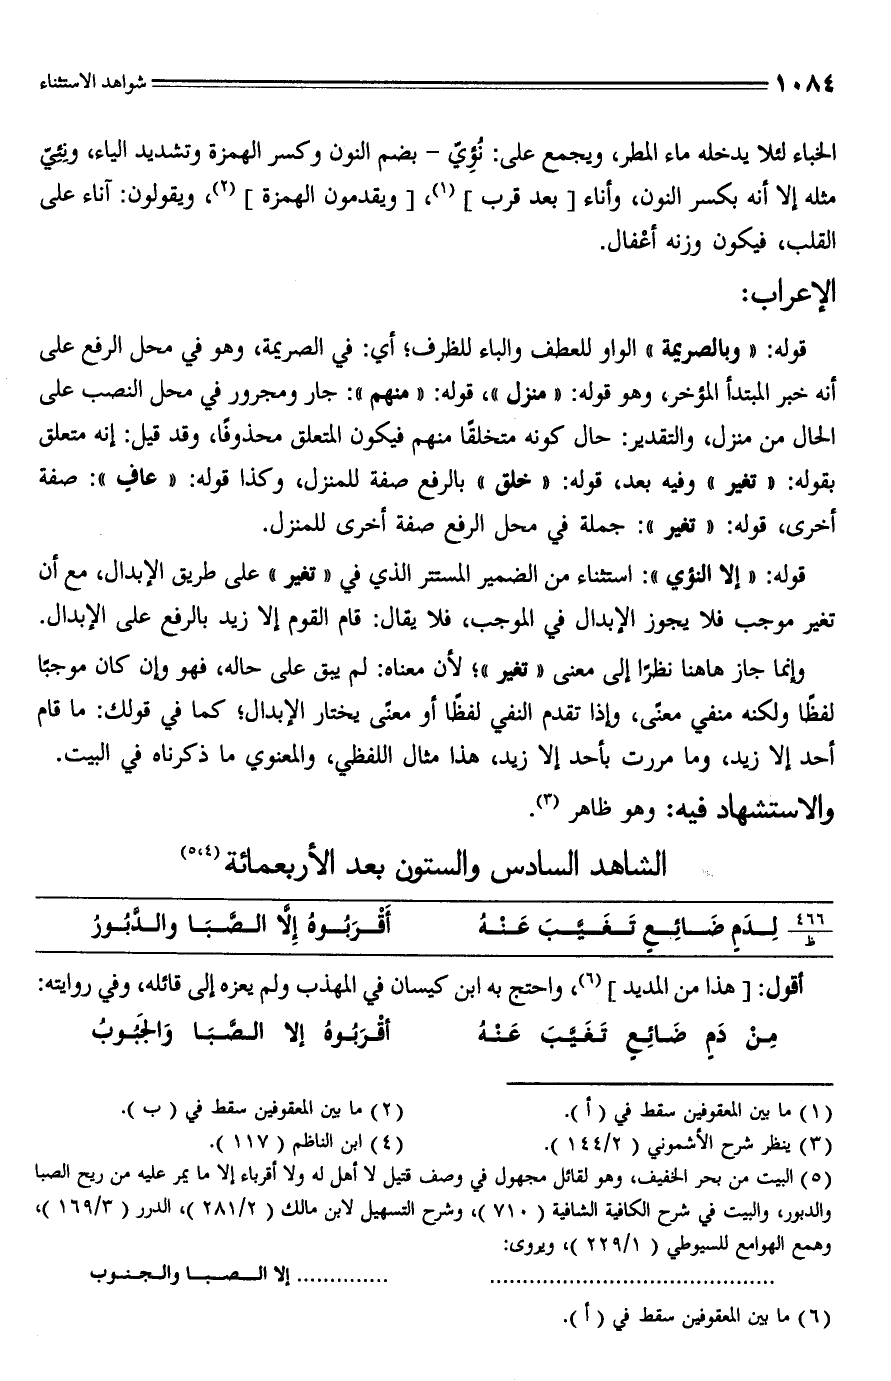 ١٠٨٤ شواهد الاستثناء
الخباء لئلا يدخله ماء المطر، ويجمع على: نُؤِيّ – بضم النون وكسر الهمزة وتشديد الياء، ونِئِيّ
مثله إلا أنه بكسر النون، وأناء [ بعد قرب ] (١)، [ ويقدمون الهمزة ] (٢)، ويقولون: آناء على
القلب، فيكون وزنه أعْفال.
الإعراب:
قوله: « وبالصريمة » الواو للعطف والباء للظرف؛ أي: في الصريمة، وهو في محل الرفع على
أنه خبر المبتدأ المؤخر، وهو قوله: « منزل »، قوله: « منهم »: جار ومجرور في محل النصب على
الحال من منزل، والتقدير: حال كونه متخلفًا منهم فيكون المتعلق محذوفًا، وقد قيل: إنه متعلق
بقوله: « تغير » وفيه بعد، قوله: « خلق » بالرفع صفة للمنزل، وكذا قوله: « عافٍ »: صفة
أخرى، قوله: « تغير »: جملة في محل الرفع صفة أخرى للمنزل.
قوله: « إلا النؤي »: استثناء من الضمير المستتر الذي في « تغير » على طريق الإبدال، مع أن
تغير موجب فلا يجوز الإبدال في الموجب، فلا يقال: قام القوم إلا زيد بالرفع على الإبدال.
وإنما جاز هاهنا نظرًا إلى معنى « تغير »؛ لأن معناه: لم يبق على حاله، فهو وإن كان موجبًا
لفظًا ولكنه منفي معنًى، وإذا تقدم النفي لفظًا أو معنًى يختار الإبدال؛ كما في قولك: ما قام
أحد إلا زيد، وما مررت بأحد إلا زيد، هذا مثال اللفظي، والمعنوي ما ذكرناه في البيت.
والاستشهاد فيه: وهو ظاهر (٣).
الشاهد السادس والستون بعد الأربعمائة (٤،٥)
٤٦٦ ظ لِـدَمٍ ضَائِـعٍ تَـغَـيَّـبَ عَنْـهُ أَقْـرَبُـوهُ إِلَّا الـصَّـبَـا والـدَّبُـورُ
أقول: [ هذا من المديد ] (٦)، واحتج به ابن كيسان في المهذب ولم يعزه إلى قائله، وفي روايته:
مِـنْ دَمٍ ضَـائِعٍ تَـغَـيَّـبَ عَـنْـهُ أقْـرَبُـوهُ إلا الـصَّـبَـا وَالجَبُـوبُ
(١) ما بين المعقوفين سقط في ( أ ). (٢) ما بين المعقوفين سقط في ( ب ).
(٣) ينظر شرح الأشموني ( ١٤٤/٢ ). (٤) ابن الناظم ( ١١٧ ).
(٥) البيت من بحر الخفيف، وهو لقائل مجهول في وصف قتيل لا أهل له ولا أقرباء إلا ما يمر عليه من ريح الصبا
والدبور، والبيت في شرح الكافية الشافية ( ٧١٠ )، وشرح التسهيل لابن مالك ( ٢٨١/٢ )، الدرر ( ١٦٩/٣ )،
وهمع الهوامع للسيوطي ( ٢٢٩/١ )، ويروى:
......................................... ............. إلا الـصـبـا والـجـنـوب
(٦) ما بين المعقوفين سقط في ( أ ).